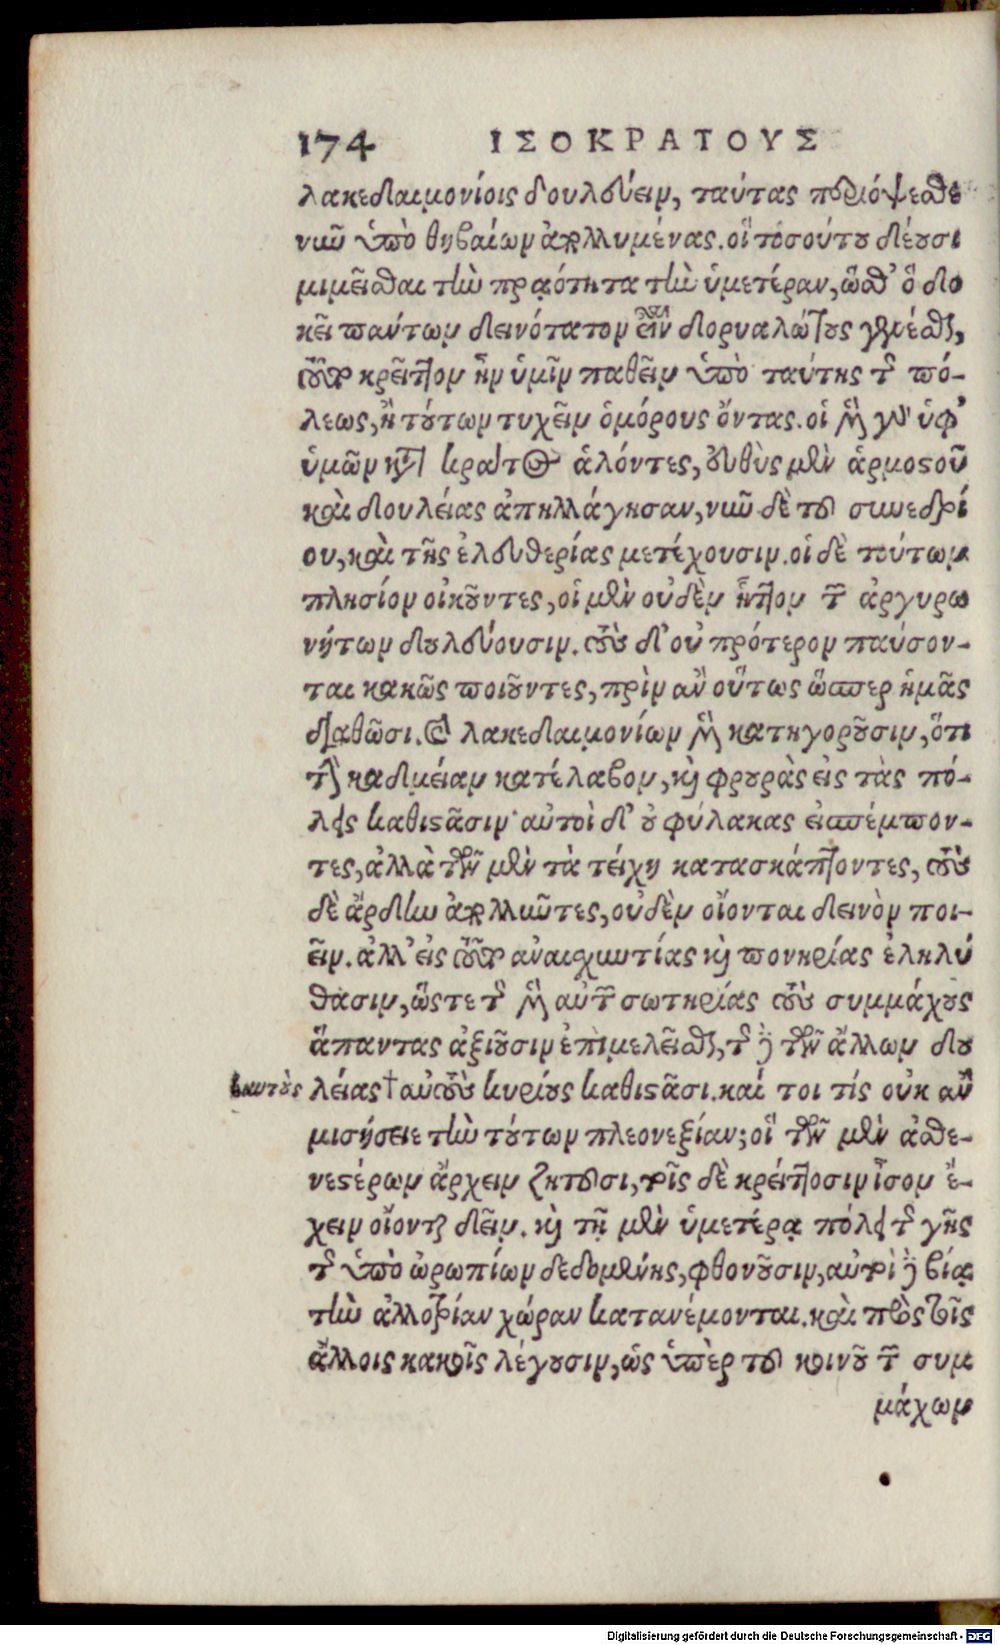 174 ΙΣΟΚΡΑΤΟΥΣ
λακεδαιμονίοις δουλεύειν, ταύτας περιόψεσθε
νῦν ὑπὸ θηβαίων ἀπολλυμένας. οἳ τοσούτου δέουσι
μιμεῖσθαι τὴν πρᾳότητα τὴν ὑμετέραν, ὥσθ' ὃ δο
κεῖ πάντων δεινότατον εἶναι δορυαλώτους γενέσθαι,
τοῦτο κρεῖττον ἦν ὑμῖν παθεῖν ὑπὸ ταύτης τῆς πό-
λεως, ἢ τούτων τυχεῖν ὁμόρους ὄντας. οἱ μὲν γὰρ ὑφ'
ὑμῶν κατὰ κράτος ἁλόντες, εὐθὺς μὲν ἁρμοστοῦ
καὶ δουλείας ἀπηλλάγησαν, νῦν δὲ τοῦ συνεδρί
ου, καὶ τῆς ἐλευθερίας μετέχουσιν. οἱ δὲ τούτων
πλησίον οἰκοῦντες, οἱ μὲν οὐδὲν ἧττον τῶν ἀργυρω
νήτων δουλεύουσιν. τοὺς δ' οὐ πρότερον παύσον-
ται κακῶς ποιοῦντες, πρὶν ἂν οὕτως ὥσπερ ἡμᾶς
διαθῶσι. καὶ λακεδαιμονίων μὲν κατηγοροῦσιν, ὅτι
τὴν καδμείαν κατέλαβον, καὶ φρουρὰς εἰς τὰς πό-
λεις καθιστᾶσιν· αὐτοὶ δ' οὐ φύλακας εἰσπέμπον-
τες, ἀλλὰ τῶν μὲν τὰ τείχη κατασκάπτοντες, τοὺς
δὲ ἄρδην ἀπολλῦντες, οὐδὲν οἴονται δεινὸν ποι-
εῖν. ἀλλ' εἰς τοῦτο ἀναισχυντίας καὶ πονηρίας ἐληλύ
θασιν, ὥστε τῆς μὲν αὐτῶν σωτηρίας τοὺς συμμάχους
ἅπαντας ἀξιοῦσιν ἐπιμελεῖσθαι, τῆς δὲ τῶν ἄλλων δου
ἑαυτοὺς λείας † αὐτοὺς κυρίους καθιστᾶσι. καί τοι τίς οὐκ ἂν
μισήσειε τὴν τούτων πλεονεξίαν; οἳ τῶν μὲν ἀσθε-
νεστέρων ἄρχειν ζητοῦσι, τοῖς δὲ κρείττοσιν ἶσον ἔ-
χειν οἴονται δεῖν. καὶ τῇ μὲν ὑμετέρᾳ πόλει τῆς γῆς
τῆς ὑπὸ ὠρωπίων δεδομένης, φθονοῦσιν, αὐτοὶ δὲ βίᾳ
τὴν ἀλλοτρίαν χώραν κατανέμονται. καὶ πρὸς τοῖς
ἄλλοις κακοῖς λέγουσιν, ὡς ὑπὲρ τοῦ κοινοῦ τῶν συμ
μάχων
Digitalisierung gefördert durch die Deutsche Forschungsgemeinschaft - DFG